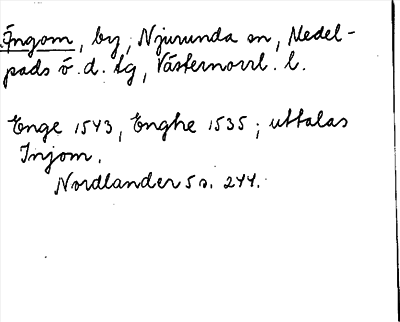 Ingom, by, Njurunda sn, Medel-
pads ö. d. tg, Västernorrl. l.
Enge 1543, Enghe 1535; uttalas
Injom.
Nordlander 5 s. 244.